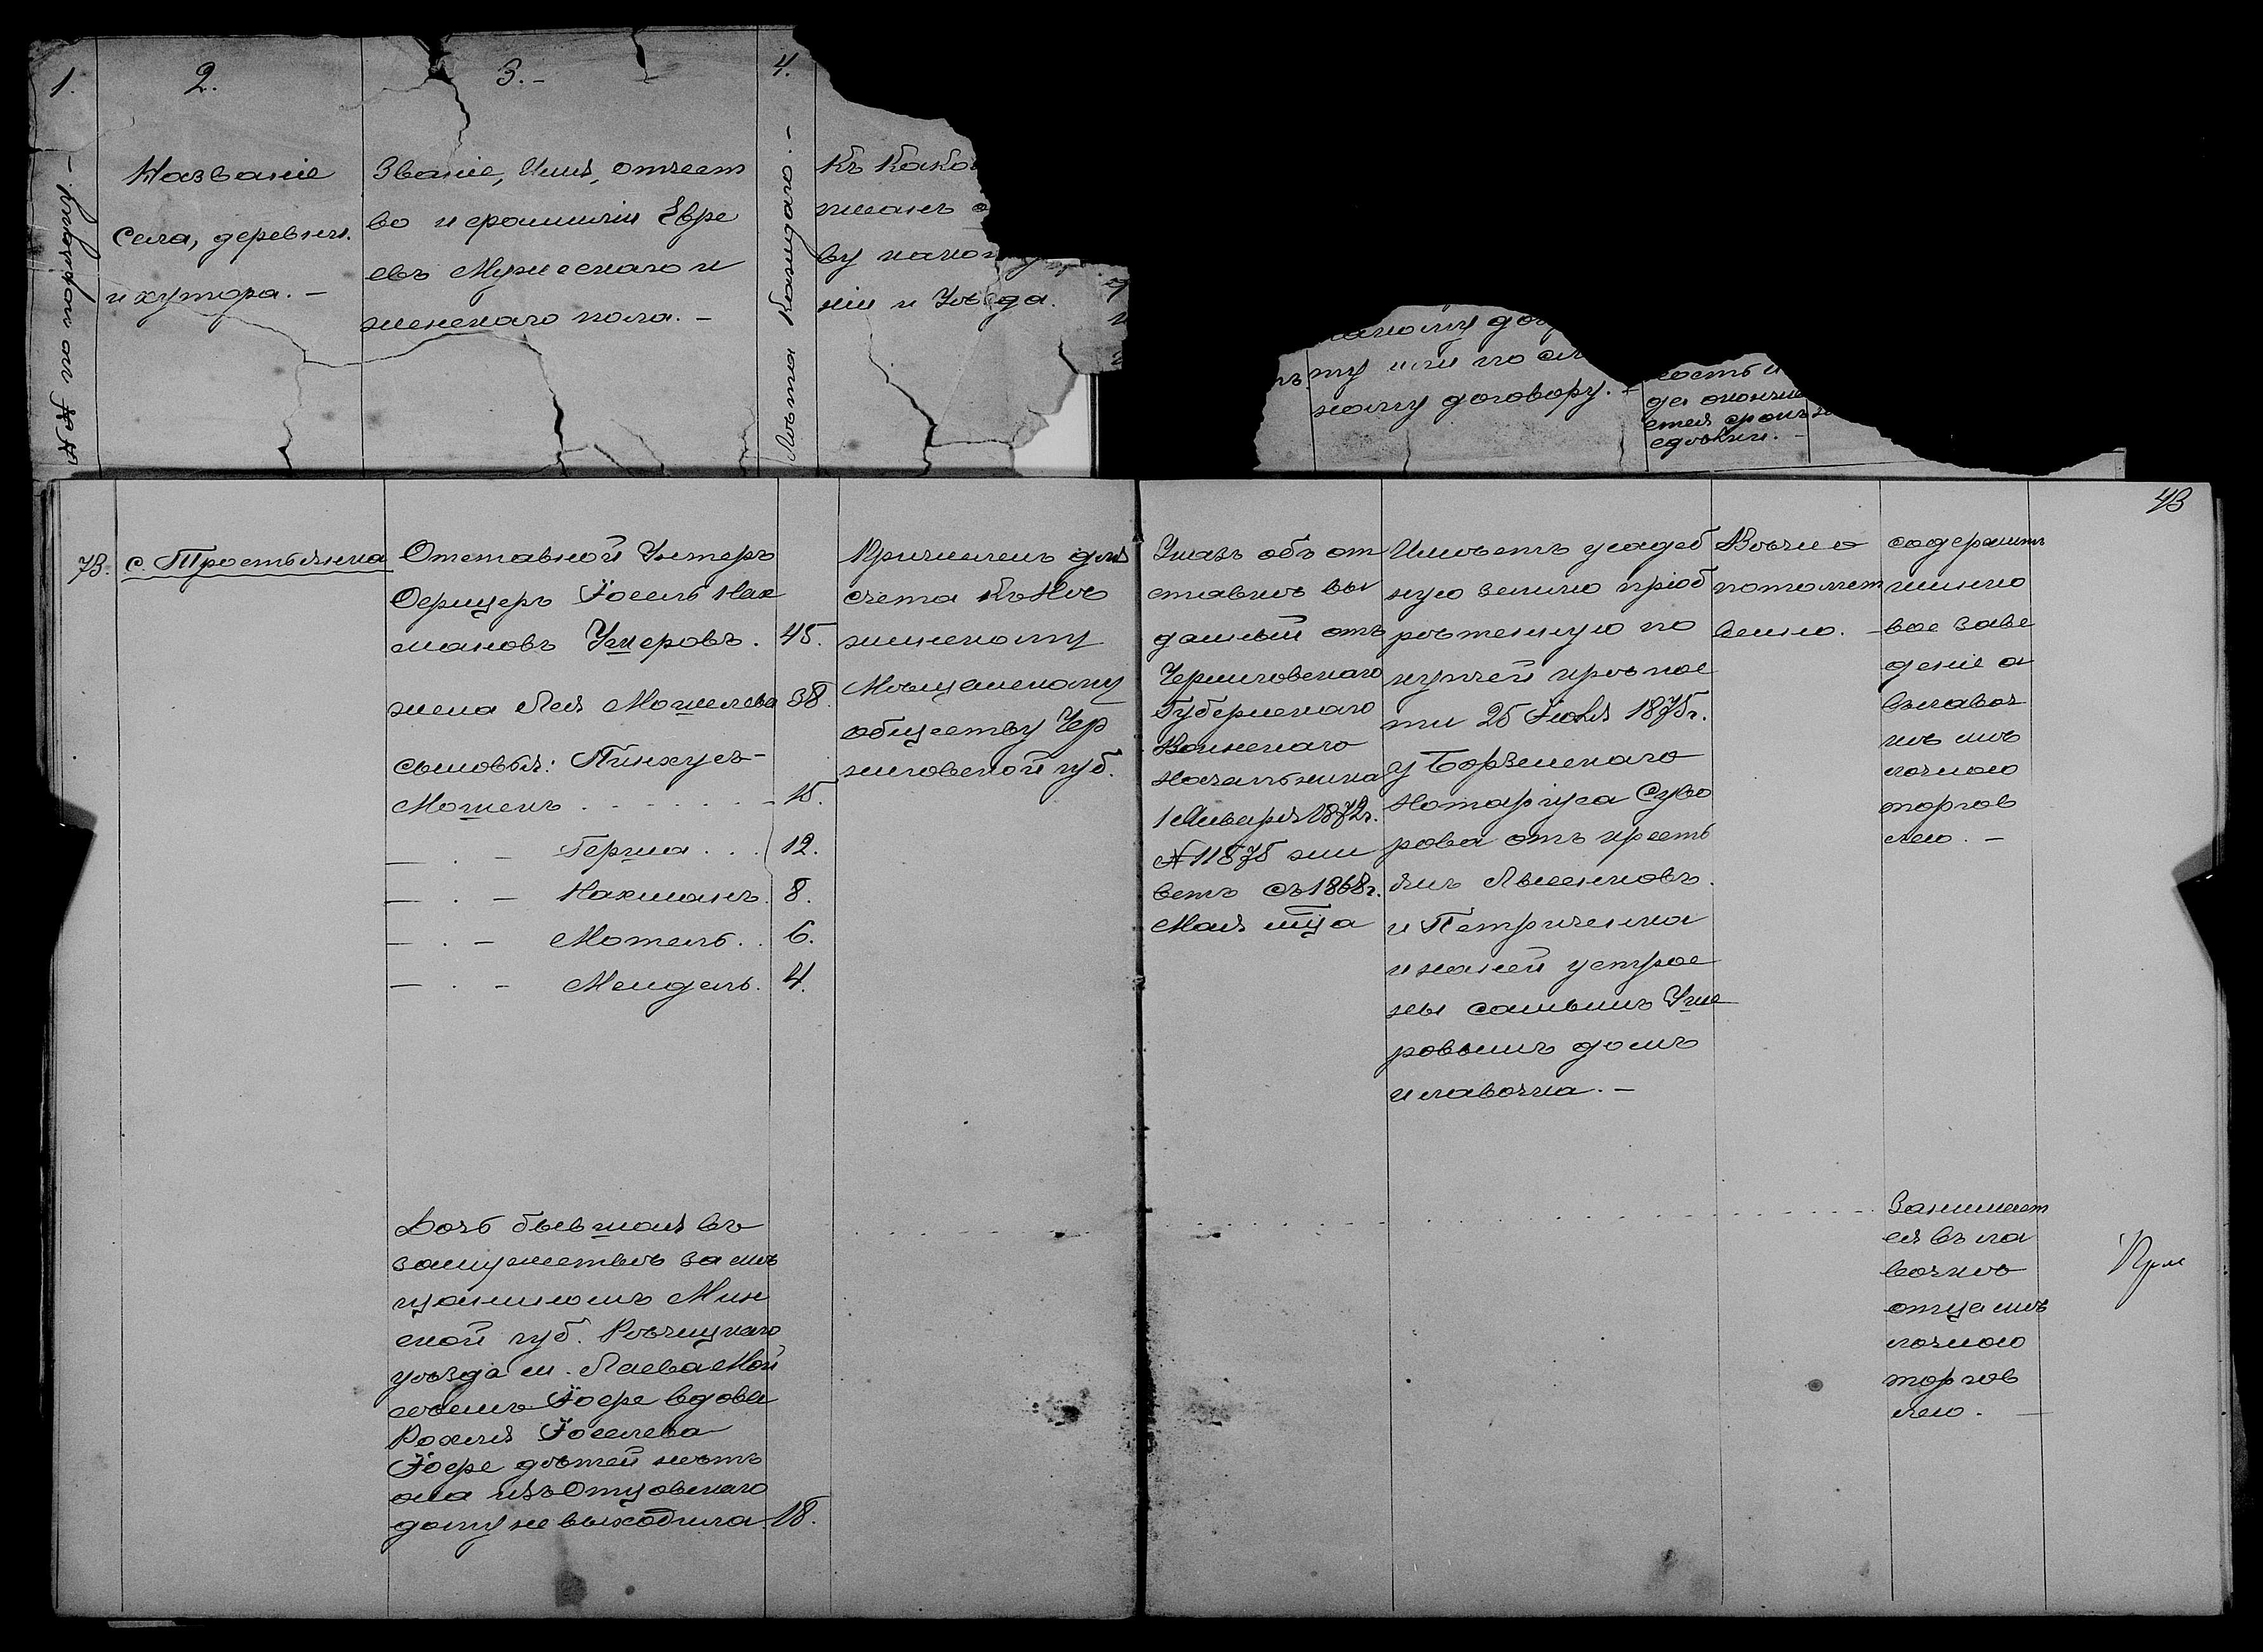 1.
№№ по порядку. –
2.
Названіе
Села, деревни
и хутора. –
3. –
Званіе, Имя, отчест
во и фамиліи Евре
евъ Мужескаго и
женскаго пола. –
4.
Лѣта Каждаго. –
Къ како
писанъ
ву како
ніи и Уѣзда.
му или по
ному договору. –
ность и
да окончи
тся срокъ
сделки. –
43
73.
с. Простянка
Отставной Унтеръ
Офицеръ Іосель Нах
мановъ Умеровъ. 45.
жена Лея Мошелева 38.
сыновья: Пинхусъ-
Мошень . . . . . . . 15.
— . – Гершка . . . 12.
— . – Нахманъ. 8.
— . – Мотель . . 6.
— . – Мендель. 4.
Причисленъ для
счета къ Нѣ
жинскому
Мѣщанскому
обществу Чер
ниговской губ.
Указъ объ от
ставкѣ вы
данный отъ
Черниговскаго
Губернскаго
Воинскаго
Начальника
1 Января 1872 г.
№ 11875 жи
ветъ съ 1868 г.
Мая мца
Имѣетъ усадеб
ную землю пріоб
рѣтенную по
купчей крѣпос
ти 25 Іюля 1875 г.
у Борзенскаго
Нотаріуса Суво
рова отъ кресть
янъ Лысенковъ
и Петриченка
и на ней устрое
ны самымъ Уме
ровымъ домъ
и лавочка. –
Вѣчно
потомст
венно. –
содержитъ
шинко
вое заве
деніе а
въ лавоч
кѣ мѣ
лочною
торгов
лею. –
Дочь бывшая въ
замужествѣ за мѣ
щаниномъ Мин
ской губ. Рѣчицкаго
уѣзда м. Лоева Мой
сѣемъ Іофе вдова
Рохля Іоселева
Іофе дѣтей нѣтъ
она изъ Отцовскаго
дому не выходила. 18.
Занимает
ся въ ла
вочкѣ
отца мѣ
лочною
торгов
лею. –